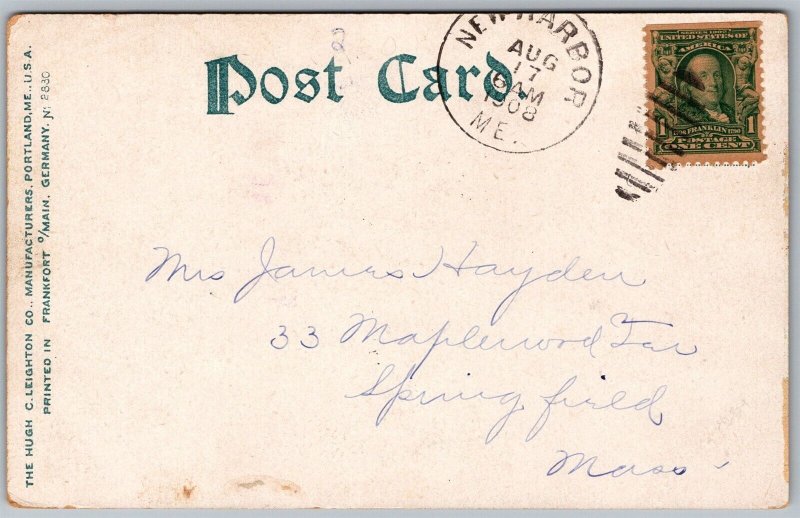 THE HUGH C. LEIGHTON CO., MANUFACTURERS, PORTLAND, ME., U.S.A.
PRINTED IN FRANKFORT o/MAIN, GERMANY. No 2880
Post Card.
NEW HARBOR
AUG
17
6 AM
1908
ME.
SERIES 1902
UNITED STATES OF
AMERICA
1 FRANKLIN 1790 1
POSTAGE
ONE CENT
Mrs James Hayden
33 Maplewood
Springfield
Mass